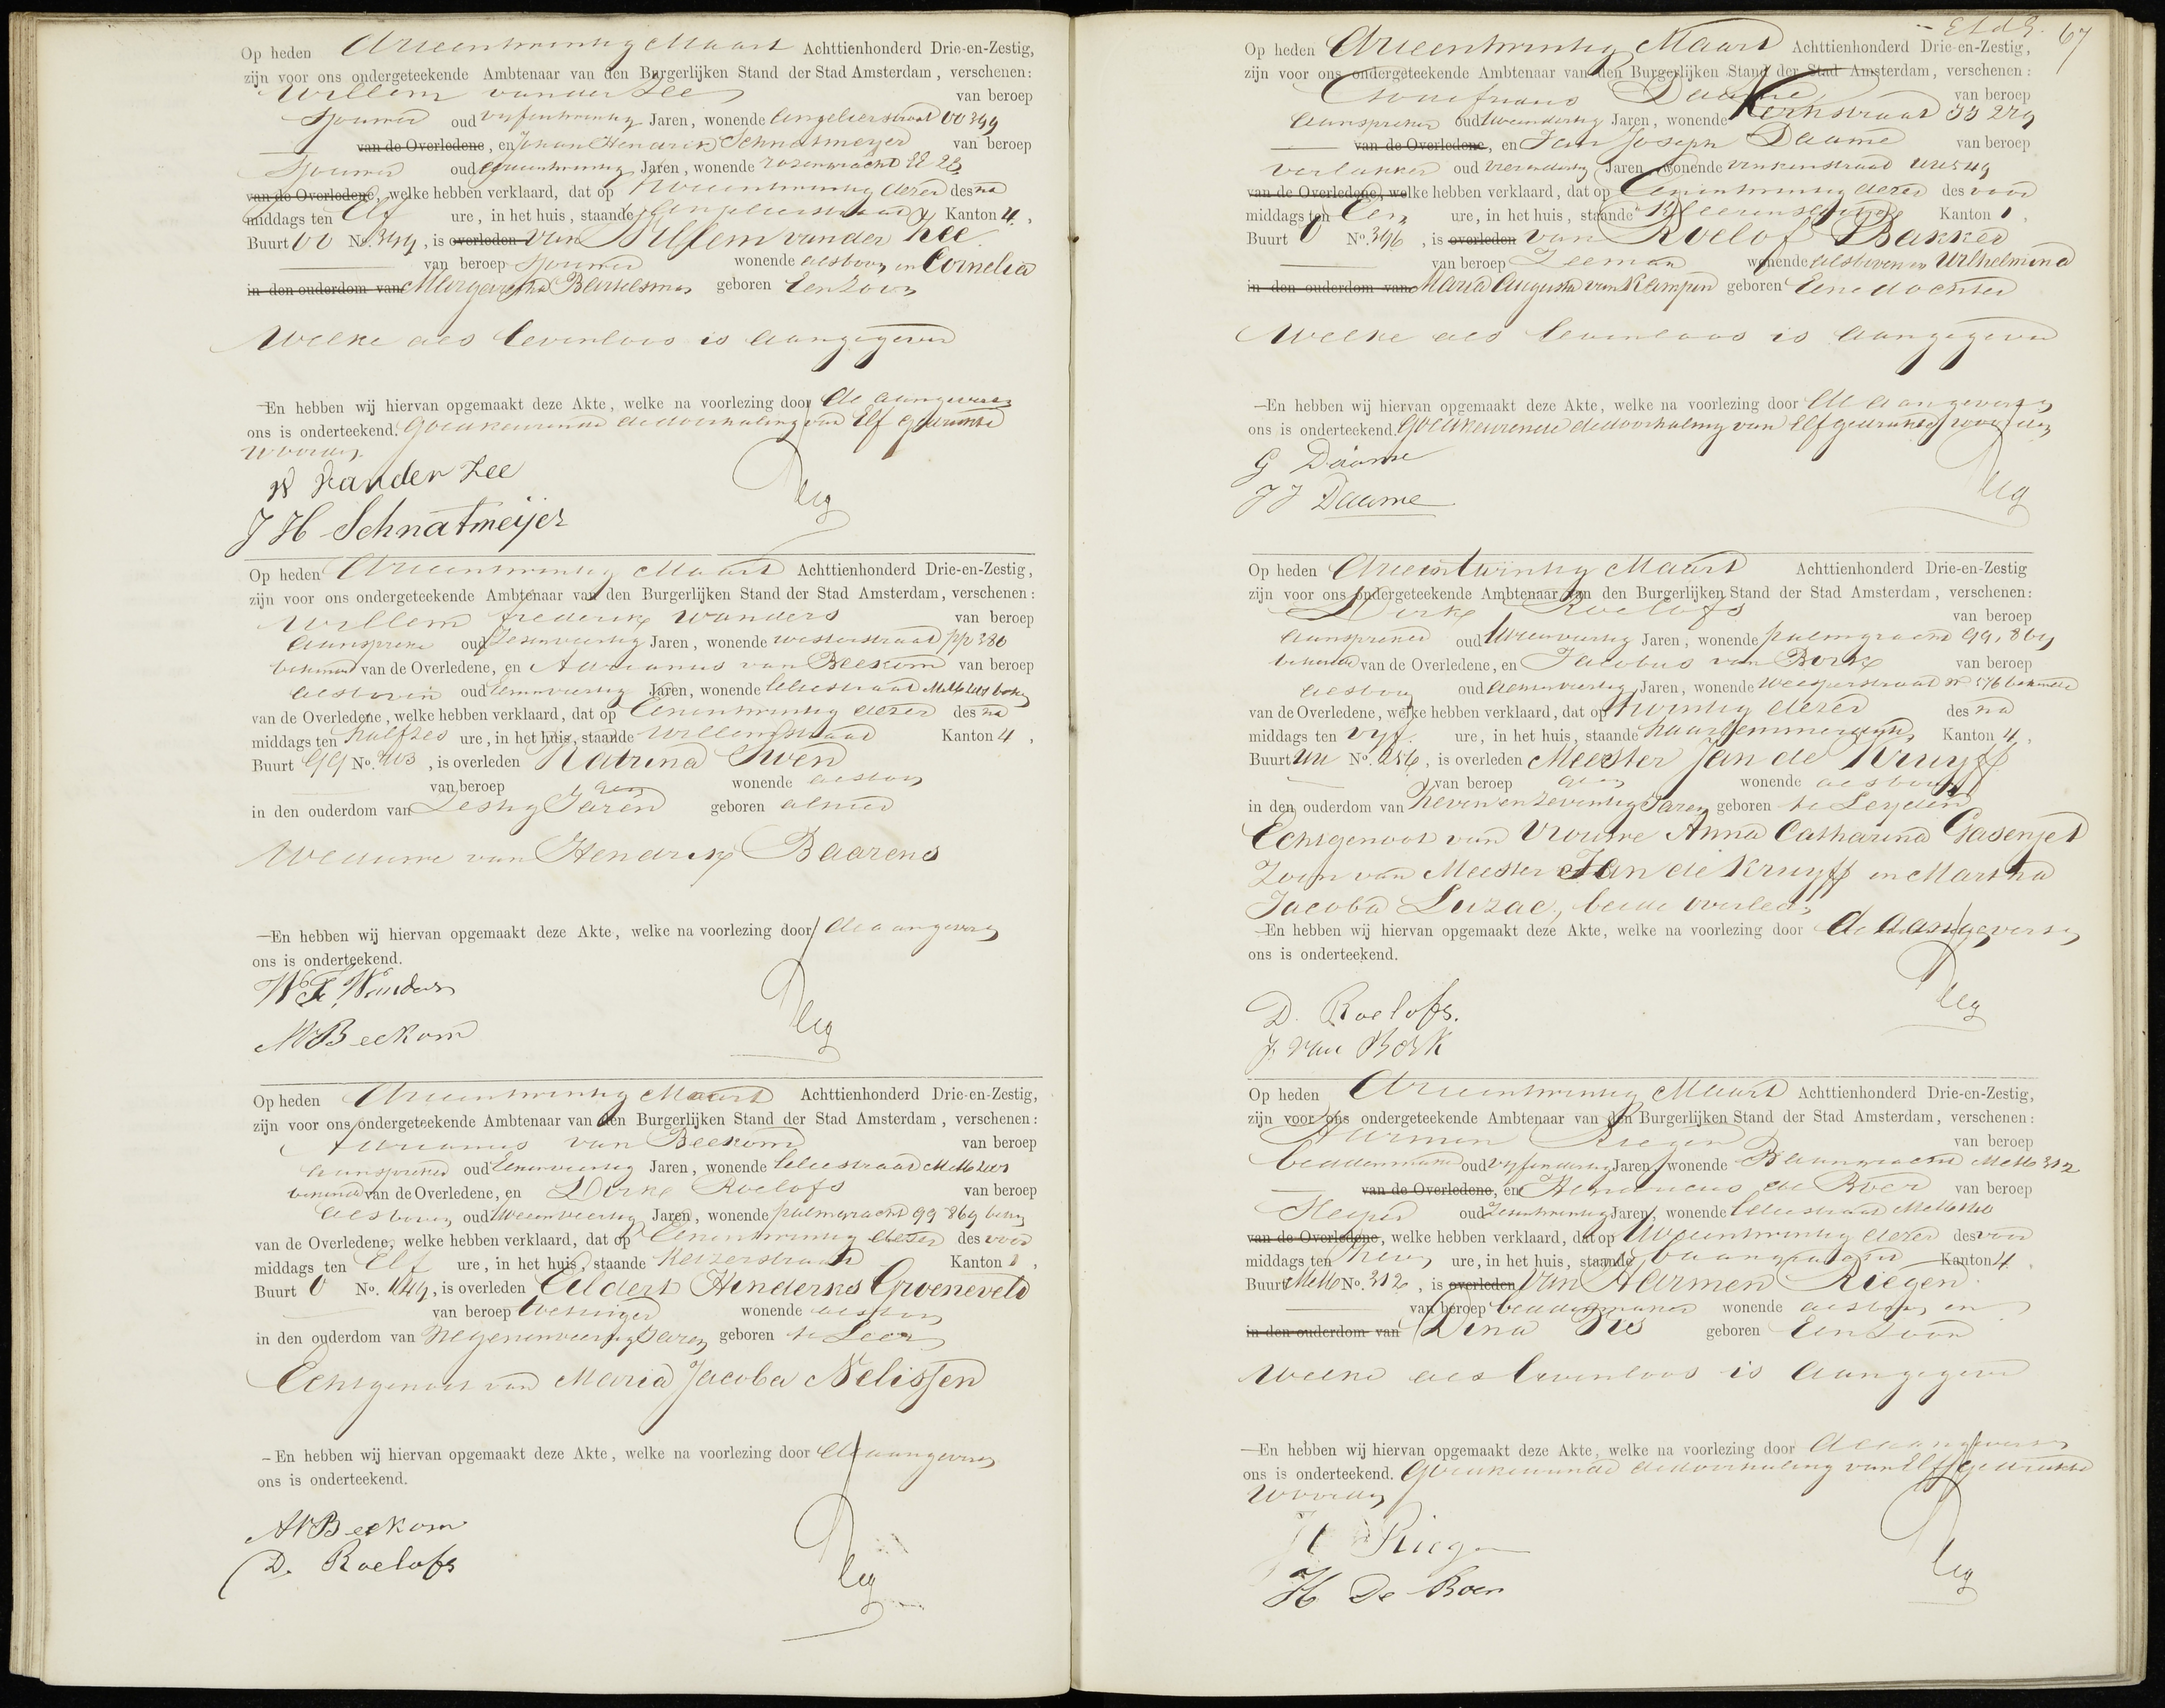 Op heden Drieentwintig Maart Achttienhonderd Drie-en-Zestig,
zijn voor ons ondergeteekende Ambtenaar van den Burgerlijken Stand der Stad Amsterdam, verschenen:
Willem van der Zee van beroep
Sjouwer oud vyfentwintig Jaren, wonende Angelierstraat OO 349
van de Overledene, en Johan Hendrik Schnatmeyer van beroep
Sjouwer oud Jaren, wonende rozengracht
van de Overledene, welke hebben verklaard, dat op tweentwintig dezer des na
middags ten Elf ure, in het huis, staande Angelierstraat Kanton 4,
Buurt OO No. 349, is overleden van Willem van der Zee
van beroep Sjouwer wonende alsboven en Cornelia
in den ouderdom van Margaretha geboren Een Zoon
Welke als levenloos is aangegeven
En hebben wij hiervan opgemaakt deze Akte, welke na voorlezing door de aangevers en
ons is onderteekend. Goedkeurende de doorhaling van Elf gedrukte
woorden
W van der Zee
J H Schnatmeijer
Op heden Drieentwintig Maart Achttienhonderd Drie-en-Zestig,
zijn voor ons ondergeteekende Ambtenaar van den Burgerlijken Stand der Stad Amsterdam, verschenen:
Willem Frederik Wanders van beroep
Aanspreker oud Zesenveertig Jaren, wonende westerstraat pp 380
bekende van de Overledene, en Adrianus van Beekom van beroep
alsboven oud Eenenveertig Jaren, wonende Leliestraat
van de Overledene, welke hebben verklaard, dat op Eenentwintig dezer des na
middags ten half zes ure, in het huis, staande Willemstraat Kanton 4,
Buurt QQ No. , is overleden Katrina Swen
van beroep geen wonende alsboven
in den ouderdom van Zestig Jaren geboren alhier
Weduwe van Hendrik Baarens
En hebben wij hiervan opgemaakt deze Akte, welke na voorlezing door de aangevers en
ons is onderteekend.
W. F. Wanders
AV Beekom
Op heden Drieentwintig Maart Achttienhonderd Drie-en-Zestig,
zijn voor ons ondergeteekende Ambtenaar van den Burgerlijken Stand der Stad Amsterdam, verschenen:
Adrianus van Beekom van beroep
Aanspreker oud Eenenveertig Jaren, wonende Leliestraat
bekende van de Overledene, en Dirk Roelofs van beroep
alsboven oud tweeenveertig Jaren, wonende palmgracht QQ 869
van de Overledene, welke hebben verklaard, dat op Eenentwintig dezer des voor
middags ten Elf ure, in het huis, staande Keizerstraat Kanton 1,
Buurt O No. , is overleden Eildert Hinderks Groeneveld
van beroep wonende alsboven
in den ouderdom van Negenenveertig Jaren geboren te Leer
Echtgenoot van Maria Jacoba Nelissen
En hebben wij hiervan opgemaakt deze Akte, welke na voorlezing door de aangevers en
ons is onderteekend.
AV Beekom
D. Roelofs
67
Op heden Drieentwintig Maart Achttienhonderd Drie-en-Zestig,
zijn voor ons ondergeteekende Ambtenaar van den Burgerlijken Stand der Stad Amsterdam, verschenen:
Daame van beroep
Aanspreker oud Jaren, wonende Kerkstraat
van de Overledene, en Jan Joseph Daame van beroep
verlakker oud Jaren, wonende vinkenstraat
van de Overledene, welke hebben verklaard, dat op Eenentwintig dezer des voor
middags ten Een ure, in het huis, staande Kanton 1,
Buurt O No. 396, is overleden van Roelof Bakker
van beroep Zeeman wonende alsboven en Wilhelmina
in den ouderdom van Maria Augusta van Kampen geboren Eene dochter
Welke als levenloos is aangegeven
En hebben wij hiervan opgemaakt deze Akte, welke na voorlezing door de aangevers en
ons is onderteekend. Goedkeurende de doorhaling van Elf gedrukte woorden
G Daame
J J Daame
Op heden Drieentwintig Maart Achttienhonderd Drie-en-Zestig
zijn voor ons ondergeteekende Ambtenaar van den Burgerlijken Stand der Stad Amsterdam, verschenen:
Dirk Roelofs van beroep
Aanspreker oud tweeenveertig Jaren, wonende palmgracht QQ, 869
bekende van de Overledene, en Jacobus van Bork van beroep
alsboven oud Jaren, wonende Weesperstraat bekende
van de Overledene, welke hebben verklaard, dat op twintig dezer des na
middags ten vyf ure, in het huis, staande haarlemmerdyk Kanton 4,
Buurt No. , is overleden Meester Jan de Kruyff
van beroep geen wonende alsboven
in den ouderdom van Zevenenzeventig Jaren geboren te Leyden
Echtgenoot van Vrouwe Anna Catharina Gasenjet
Zoon van Meester Jan de Kruyff en Martha
Jacoba Luzac, beide overleden
En hebben wij hiervan opgemaakt deze Akte, welke na voorlezing door de aangevers en
ons is onderteekend.
D. Roelofs.
J. van Bork
Op heden Drieentwintig Maart Achttienhonderd Drie-en-Zestig,
zijn voor ons ondergeteekende Ambtenaar van den Burgerlijken Stand der Stad Amsterdam, verschenen:
Harmen Riegen van beroep
beddenmaker oud vyfendertig Jaren, wonende Baangracht 312
van de Overledene, en Hermanus de Boer van beroep
oud Zesentwintig Jaren, wonende Leliestraat
van de Overledene, welke hebben verklaard, dat op tweeentwintig dezer des voor
middags ten ure, in het huis, staande baangracht Kanton 4
Buurt No. 312, is overleden van Harmen Riegen
van beroep beddenmaker wonende alsboven en
in den ouderdom van Dina geboren Een Zoon
Welke als levenloos is aangegeven
En hebben wij hiervan opgemaakt deze Akte, welke na voorlezing door de aangevers en
ons is onderteekend. Goedkeurende de doorhaling van Elf gedrukte
woorden
H Riegen
H De Boer